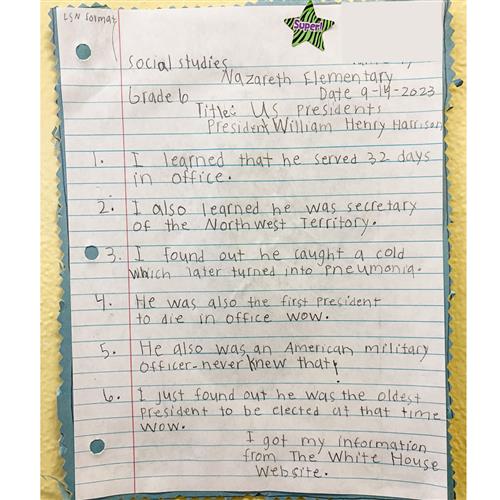 LSN format
Super!
Social studies
Nazareth Elementary
Grade 6 Date 9-14-2023
Title: US Presidents
President William Henry Harrison
1. I learned that he served 32 days
in office.
2. I also learned he was secretary
of the Northwest Territory.
3. I found out he caught a cold
which later turned into pneumonia.
4. He was also the first president
to die in office wow.
5. He also was an American military
officer-never knew that!
6. I just found out he was the oldest
president to be elected at that time
wow.
I got my information
from The White House
website.